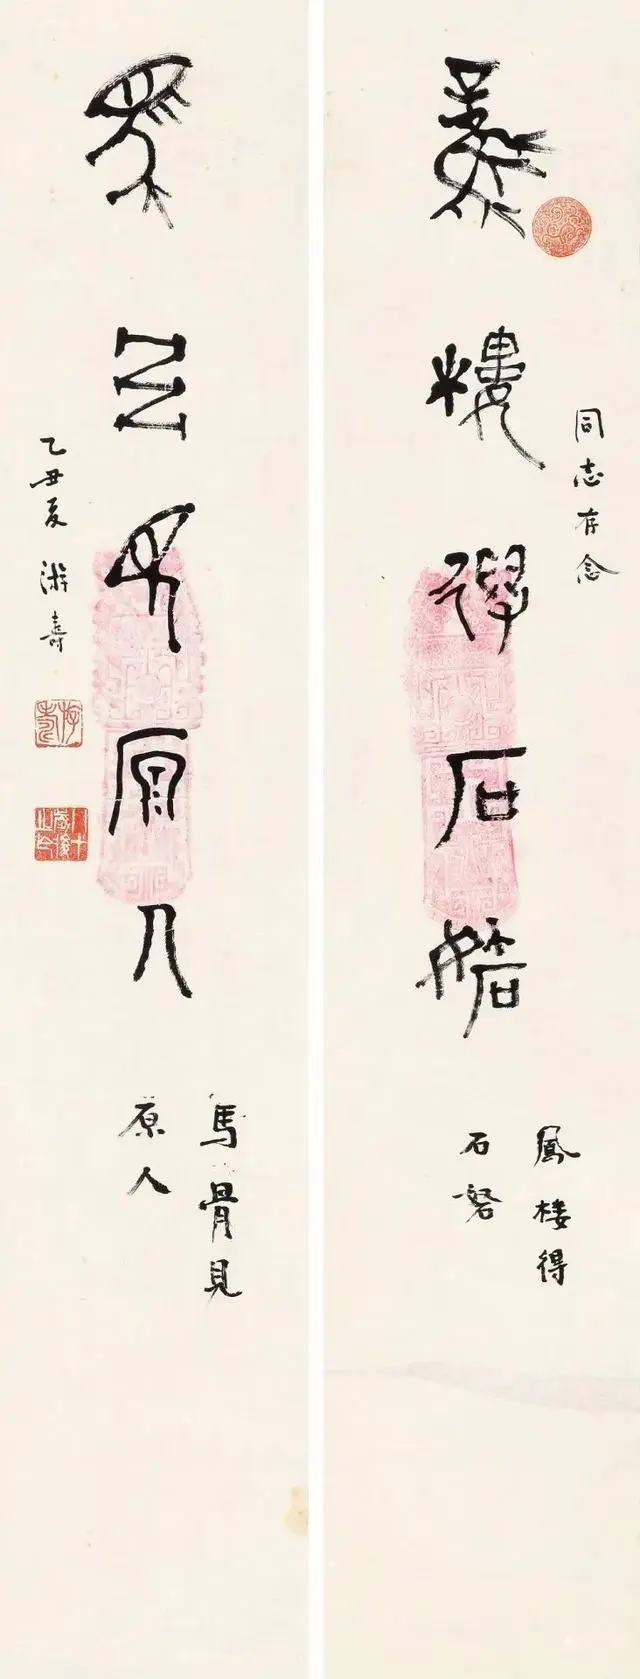 同志存念
鳳樓得石砮
鳳楼得
石砮
馬骨見原人
馬骨見
原人
乙丑夏 游壽